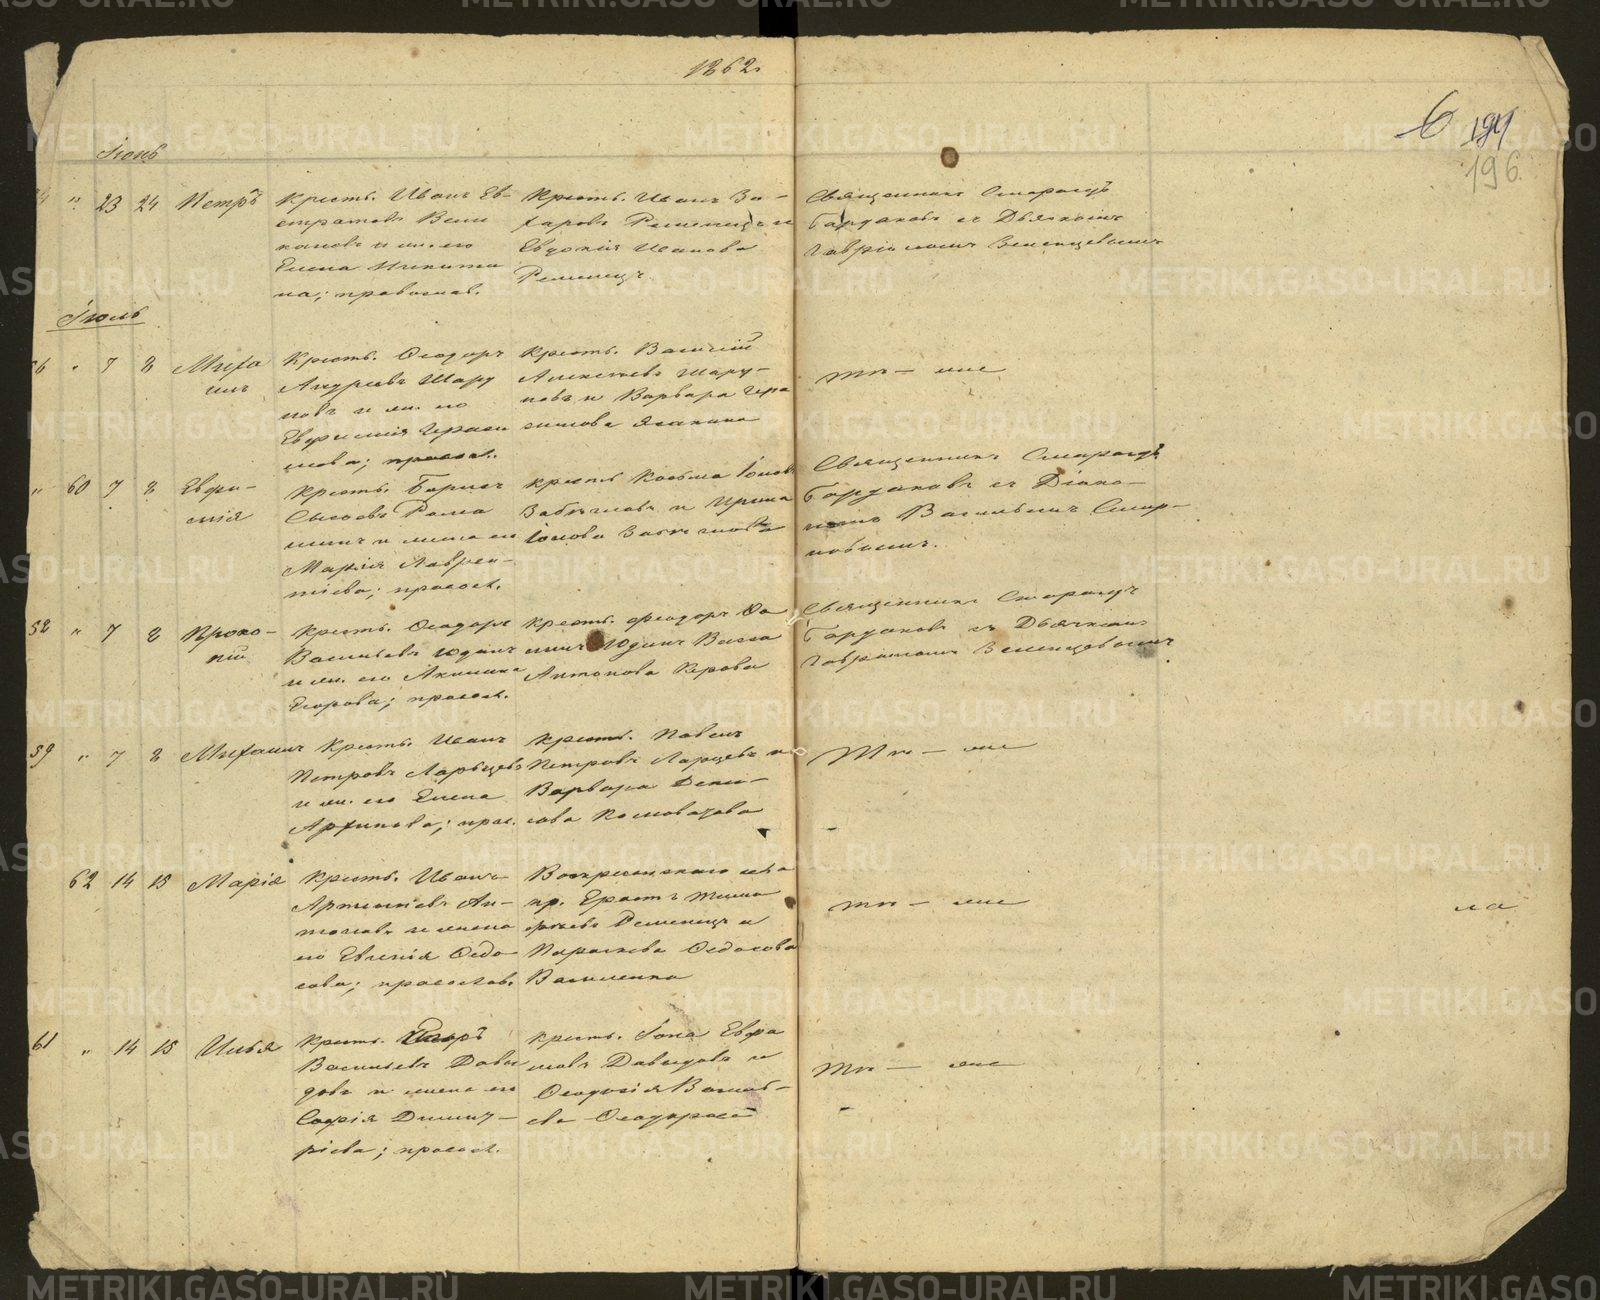 1862.
6 194
196
Іюнь
" 23 24 Петръ
Крестъ. Иванъ Ев-
стратовъ Вели
кановъ и жен. его
Елена Никити
на; православ.
Крестъ. Иванъ За-
харовъ Ременецъ и
Евдокія Иванова
Ременецъ.
Священникъ Смарагдъ
Бардаковъ съ Дьячкомъ
Гавріиломъ Зеленцовымъ
Іюль
56 " 7 8 Миха
илъ
Крестъ. Ѳеодоръ
Андреевъ Шару
повъ и жен. его
Евфимія Гераси
мова; правосл.
Крестъ. Василій
Алексѣевъ Шару-
повъ и Варвара Гера
симова
тѣ-же
" 60 7 8 Евфи-
мія
Крестъ. Борисъ
Сысоевъ Рома
шинъ и жена его
Марія Лаврен-
тіева; правосл.
Крестъ. Косьма Іоновъ
и Ирина
Іонова
Священникъ Смарагдъ
Бардаковъ съ Діако-
номъ Васильемъ Смир-
новымъ.
58 " 7 8 Проко-
пій
Крестъ. Ѳеодоръ
Васильевъ Юдинъ
и жен. его Акилина
Егорова; правосл.
Крестъ. Ѳеодоръ Ѳо
минъ Юдинъ Васса
Антонова
Священникъ Смарагдъ
Бардаковъ съ Дьячкомъ
Гавріиломъ Зеленцовымъ
59 " 7 8 Михаилъ
Крестъ. Иванъ
Петровъ Ларцевъ
и жен. его Елена
Архипова; прав.
Крестъ. Павелъ
Петровъ Ларцевъ и
Варвара Дени-
сова Коновалова
Тѣ-же
62 14 15 Марія
Крестъ. Иванъ
Артемьевъ Ан-
тоновъ и жена
его Евгенія Ѳедо
сова; православ.
Воскресенскаго
кр. Ерастъ Тимо
фѣевъ Ременецъ и
Параскева Ѳедосова
Василенко
тѣ-же
61 " 14 15 Илья
Крестъ. Егоръ
Васильевъ Давы
довъ и жена его
Софія Димит-
ріева; правосл.
Крестъ. Іона Ефра
мовъ Давыдовъ и
Ѳеодосія Василь-
ева
тѣ-же